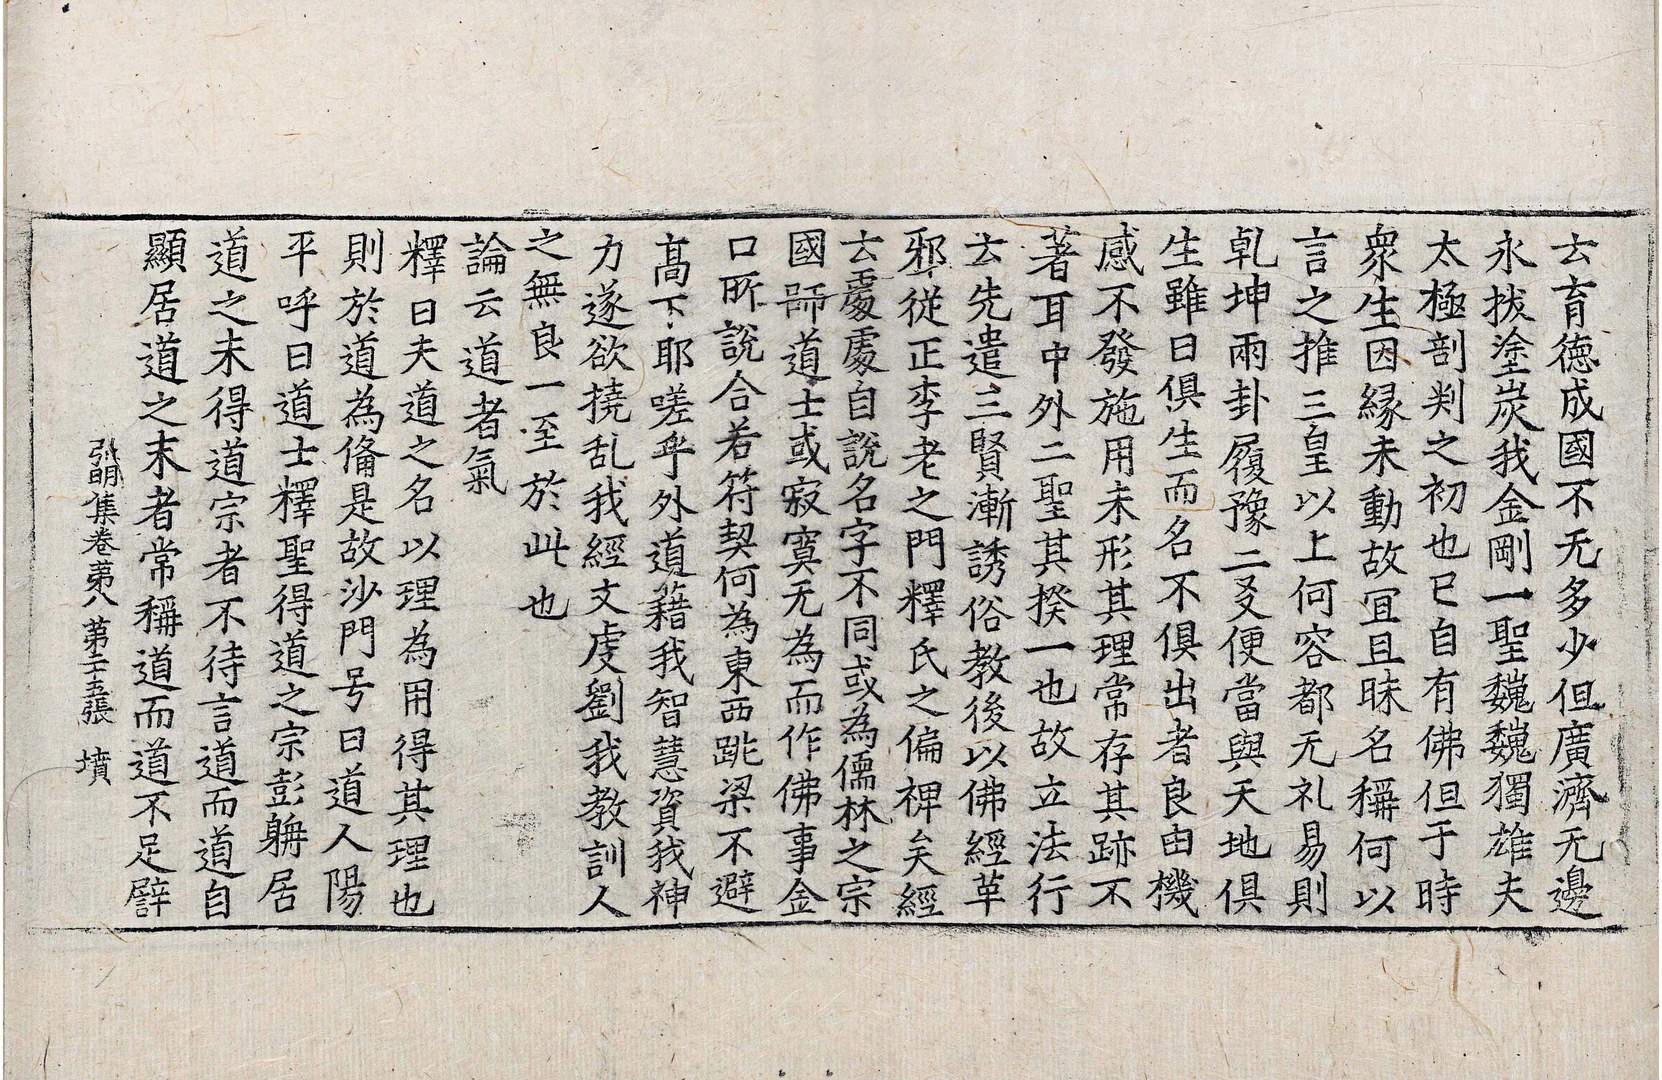 去育德成國不无多少但廣濟无邊
永拔塗炭我金剛一聖巍巍獨雄夫
太極剖判之初也已自有佛但于時
衆生因縁未動故冝且昧名稱何以
言之推三皇以上何容都无礼易則
乹坤兩卦履豫二爻便當與天地俱
生雖曰俱生而名不俱出者良由機
感不發施用未形其理常存其跡不
著耳中外二聖其揆一也故立法行
去先遣三賢漸誘俗教後以佛經革
邪從正李老之門釋氏之偏裨矣經
去處處自說名字不同或為儒林之宗
國師道士或寂寞无為而作佛事金
口所說合若符契何為東西跳梁不避
髙下耶嗟乎外道籍我智慧資我神
力遂欲撓乱我經文虔劉我教訓人
之無良一至於此也
論云道者氣
釋曰夫道之名以理為用得其理也
則於道為俻是故沙門号曰道人陽
平呼曰道士釋聖得道之宗彭聃居
道之末得道宗者不待言道而道自
顯居道之末者常稱道而道不足譬
弘明集卷苐八 苐二十五張 墳